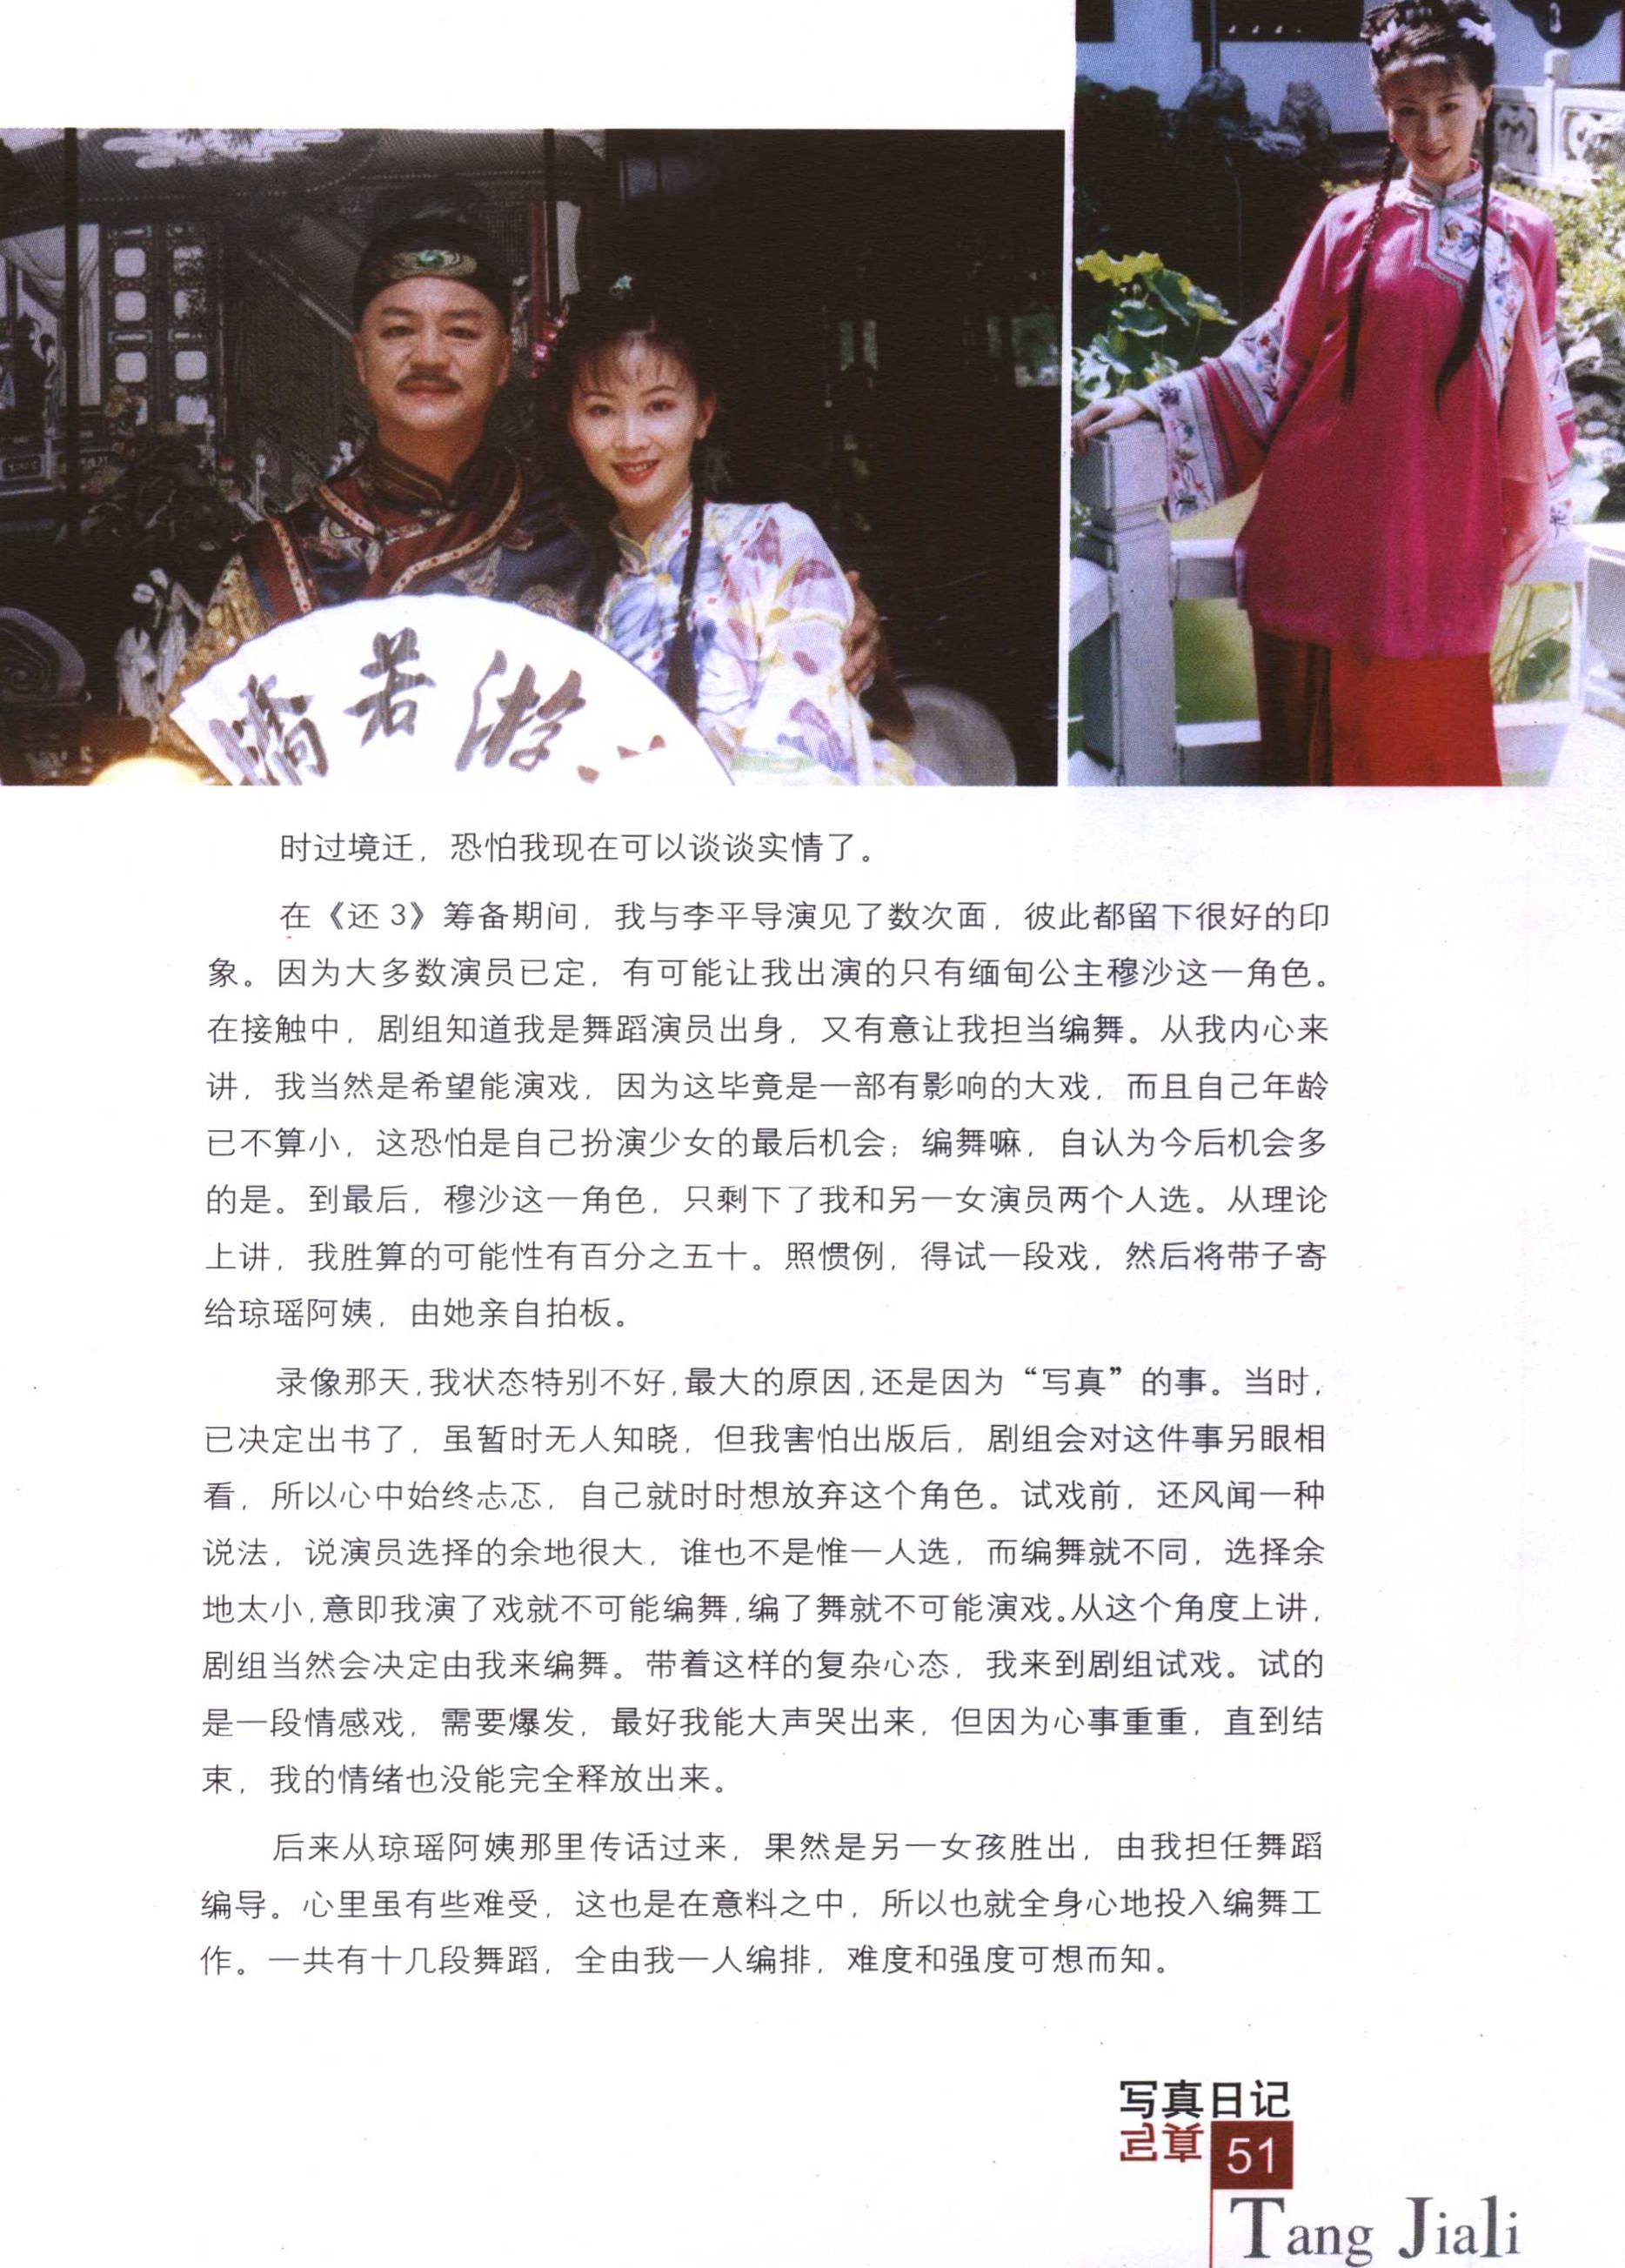 若 游
时过境迁，恐怕我现在可以谈谈实情了。
在《还 3》筹备期间，我与李平导演见了数次面，彼此都留下很好的印
象。因为大多数演员已定，有可能让我出演的只有缅甸公主穆沙这一角色。
在接触中，剧组知道我是舞蹈演员出身，又有意让我担当编舞。从我内心来
讲，我当然是希望能演戏，因为这毕竟是一部有影响的大戏，而且自己年龄
已不算小，这恐怕是自己扮演少女的最后机会；编舞嘛，自认为今后机会多
的是。到最后，穆沙这一角色，只剩下了我和另一女演员两个人选。从理论
上讲，我胜算的可能性有百分之五十。照惯例，得试一段戏，然后将带子寄
给琼瑶阿姨，由她亲自拍板。
录像那天，我状态特别不好，最大的原因，还是因为“写真”的事。当时，
已决定出书了，虽暂时无人知晓，但我害怕出版后，剧组会对这件事另眼相
看，所以心中始终忐忑，自己就时时想放弃这个角色。试戏前，还风闻一种
说法，说演员选择的余地很大，谁也不是惟一人选，而编舞就不同，选择余
地太小，意即我演了戏就不可能编舞，编了舞就不可能演戏。从这个角度上讲，
剧组当然会决定由我来编舞。带着这样的复杂心态，我来到剧组试戏。试的
是一段情感戏，需要爆发，最好我能大声哭出来，但因为心事重重，直到结
束，我的情绪也没能完全释放出来。
后来从琼瑶阿姨那里传话过来，果然是另一女孩胜出，由我担任舞蹈
编导。心里虽有些难受，这也是在意料之中，所以也就全身心地投入编舞工
作。一共有十几段舞蹈，全由我一人编排，难度和强度可想而知。
写真日记
写真
51
Tang Jiali